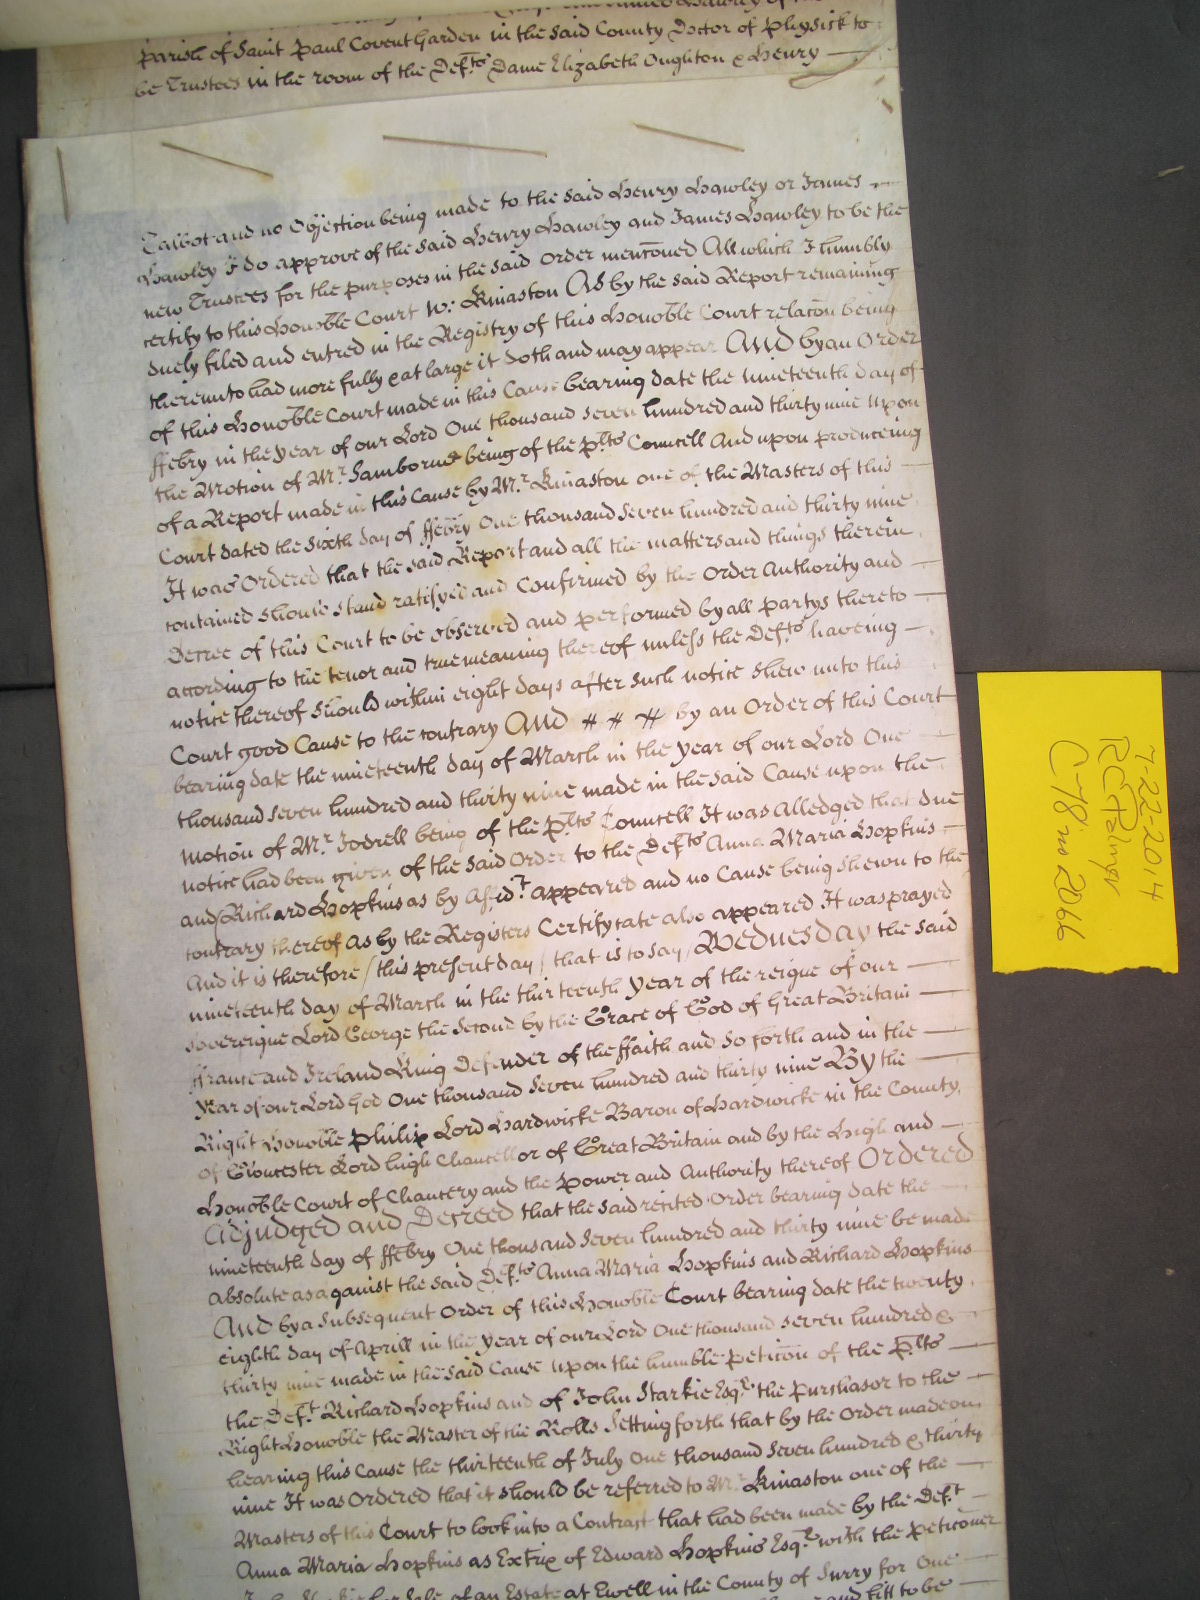 Parish of Saint Paul Covent Garden in the said County Doctor of Physick to
be Trustees in the room of the Def.ts Dame Elizabeth Oughton & Henry
Talbot and no Objection being made to the said Henry Hawley or James
Hawley I do approve of the said Henry Hawley and James Hawley to be the
new Trustees for the purposes in the said Order menc̄oned All which I humbly
certify to this Honoble Court W: Kinaston As by the said Report remaining
duely filed and entred in the Registry of this Honoble Court relac̄on being
thereunto had more fully & at large it doth and may appear And by an Order
of this Honoble Court made in this Cause bearing date the nineteenth day of
ffebry in the year of our Lord One thousand seven hundred and thirty nine upon
the Motion of Mr. Samborne being of the Plts Councell And upon produceing
of a Report made in this Cause by Mr. Kinaston one of the Masters of this
Court dated the sixth day of ffebry One thousand seven hundred and thirty nine
It was Ordered that the said Report and all the matters and things therein
contained should stand ratifyed and Confirmed by the Order Authority and
Decree of this Court to be observed and performed by all partys thereto
according to the tenor and true meaning thereof unless the Def.ts haveing
notice thereof should within eight days after such notice shew unto this
Court good Cause to the contrary And # # # by an Order of this Court
bearing date the nineteenth day of March in the year of our Lord One
thousand seven hundred and thirty nine made in the said Cause upon the
Motion of Mr. Jodrell being of the Plts Councell It was Alledged that due
notice had been given of the said Order to the Def.ts Anna Maria Hopkins
and Richard Hopkins as by Affid.t appeared and no Cause being shewn to the
contrary thereof as by the Registers Certifycate also appeared It was prayed
And it is therefore / this present day / that is to say / Wednesday the said
nineteenth day of March in the thirteenth year of the reigne of our
Sovereigne Lord George the Second by the Grace of God of Great Britain
ffrance and Ireland King Defender of the ffaith and so forth and in the
year of our Lord God One thousand seven hundred and thirty nine By the
Right Honoble Philip Lord Hardwicke Baron of Hardwicke in the County
of Gloucester Lord high Chancellor of Great Britain and by the high and
Honoble Court of Chancery and the Power and Authority thereof Ordered
Adjudged and Decreed that the said recited Order bearing date the
nineteenth day of ffebry One thousand seven hundred and thirty nine be made
absolute as against the said Def.ts Anna Maria Hopkins and Richard Hopkins
And by a Subsequent Order of this Honoble Court bearing date the twenty
eighth day of Aprill in the year of our Lord One thousand seven hundred &
thirty nine made in the said Cause upon the humble petic̄on of the Plts
the Def.t Richard Hopkins and of John Starkie Esq.r the purchasor to the
Right Honoble the Master of the Rolls Setting forth that by the Order made on
hearing this Cause the thirteenth of July One thousand seven hundred & thirty
nine It was Ordered that it should be referred to Mr. Kinaston one of the
Masters of this Court to look into a Contract that had been made by the Def.t
Anna Maria Hopkins as Extrix of Edward Hopkins Esq.r with the petic̄oner
for Sale of an Estate at Ewell in the County of Surry for One
and fitt to be
7-22-2014
RCPalmer
C78 no 2066